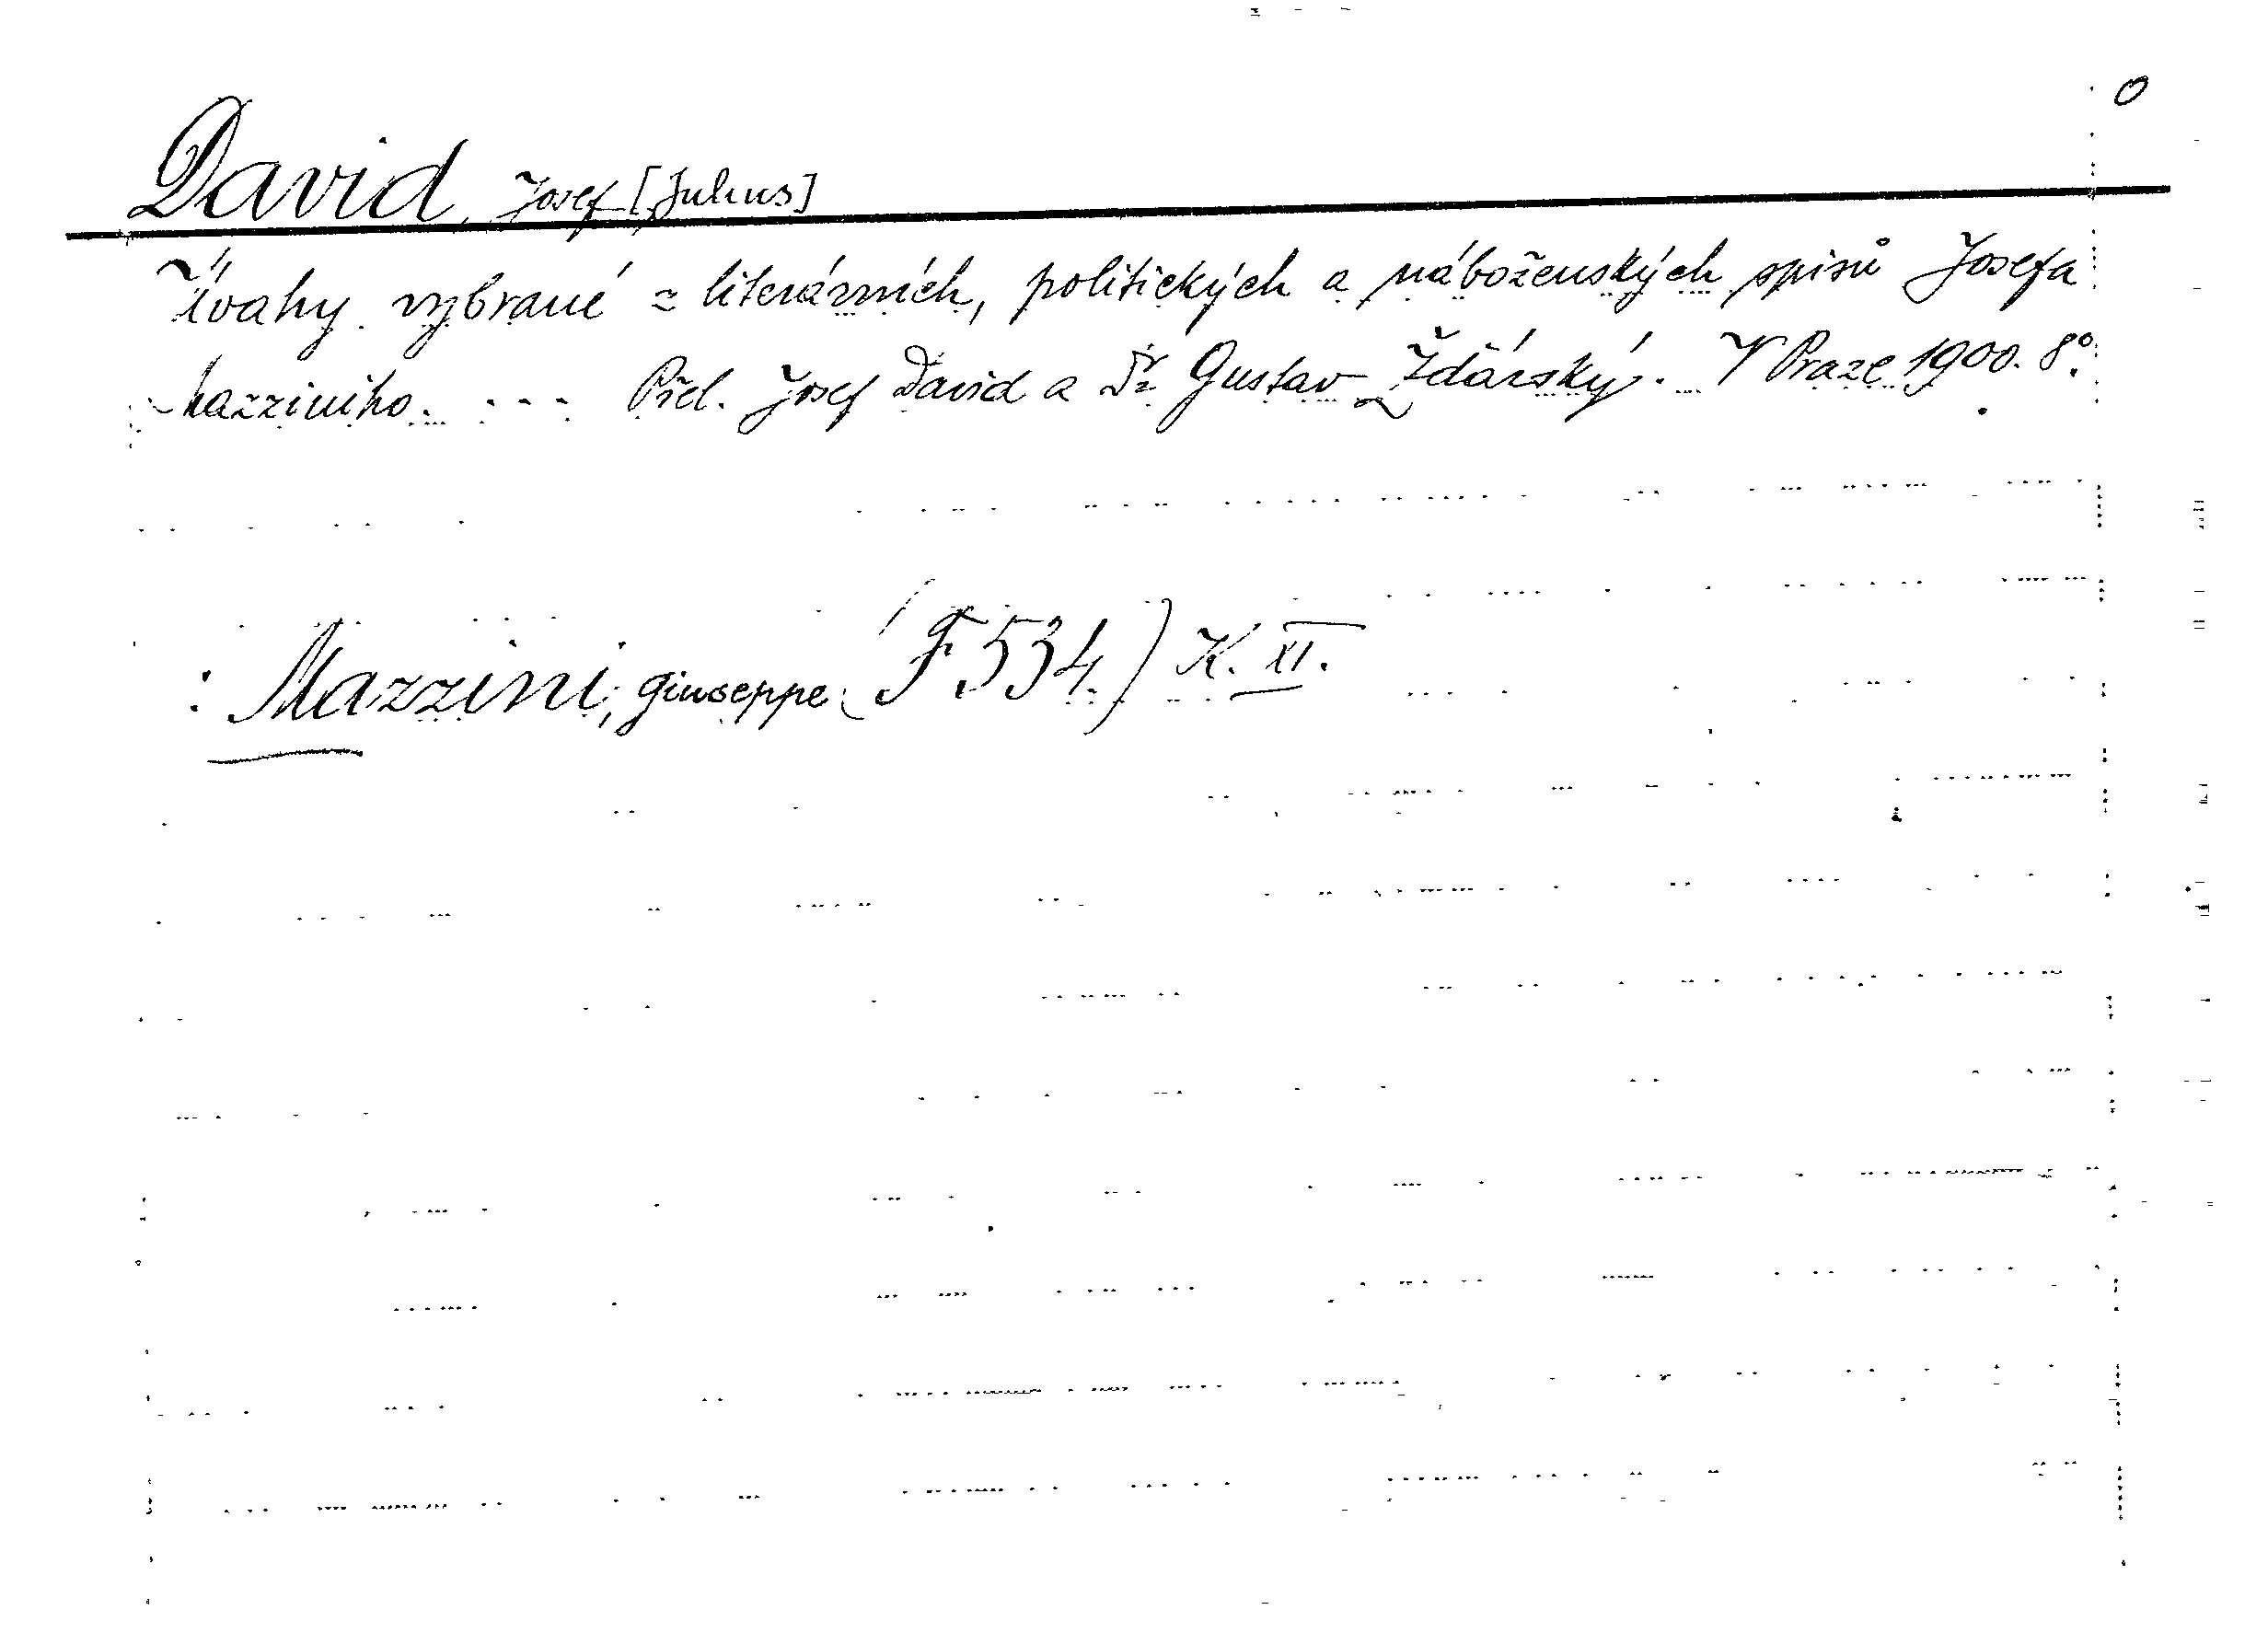 O
David, Josef [Julius]
Úvahy vybrané z literárních, politických a náboženských spisů Josefa
Mazziniho. - - - Přel. Josef David a Dr Gustav Žďárský. V Praze 1900. 8°.
: Mazzini, Giuseppe (F 534) K. XI.